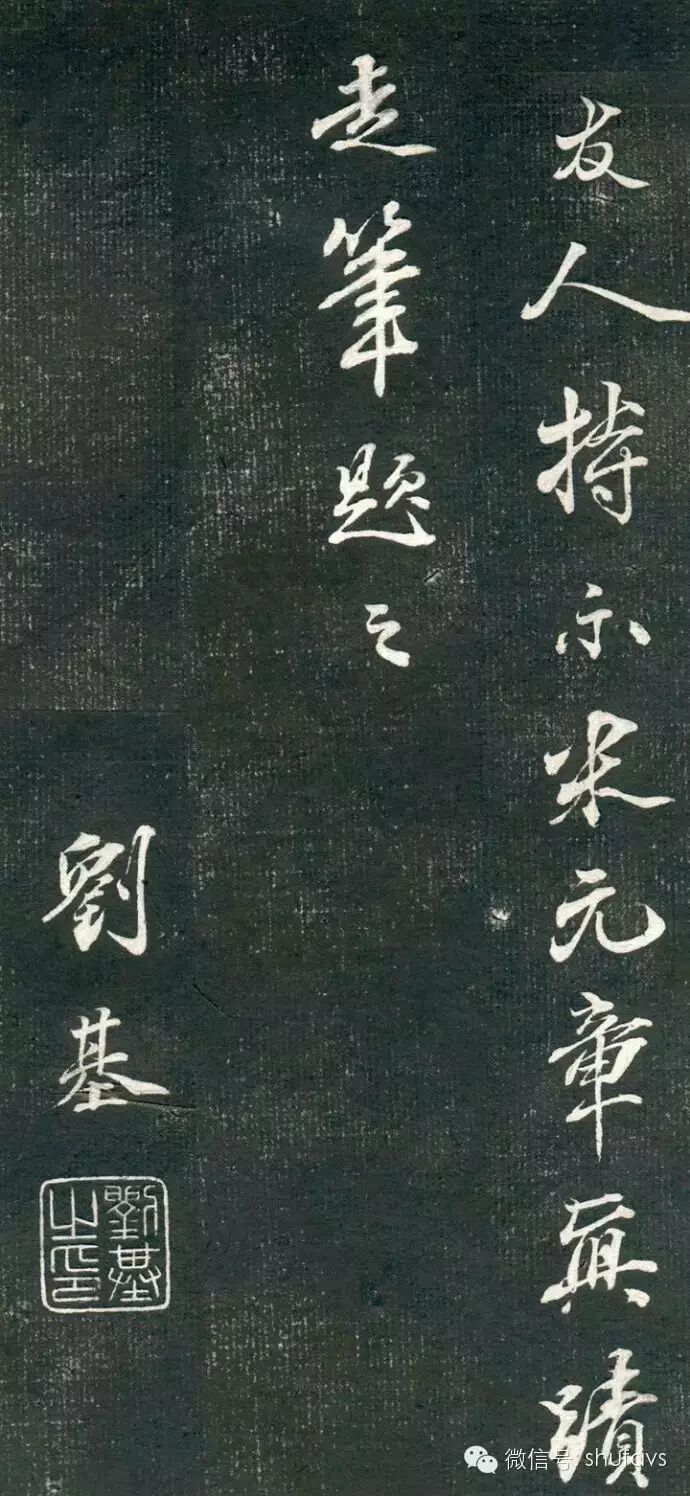 友人持示米元章真蹟
走筆題之
劉基
劉基之印
微信号: shufavs